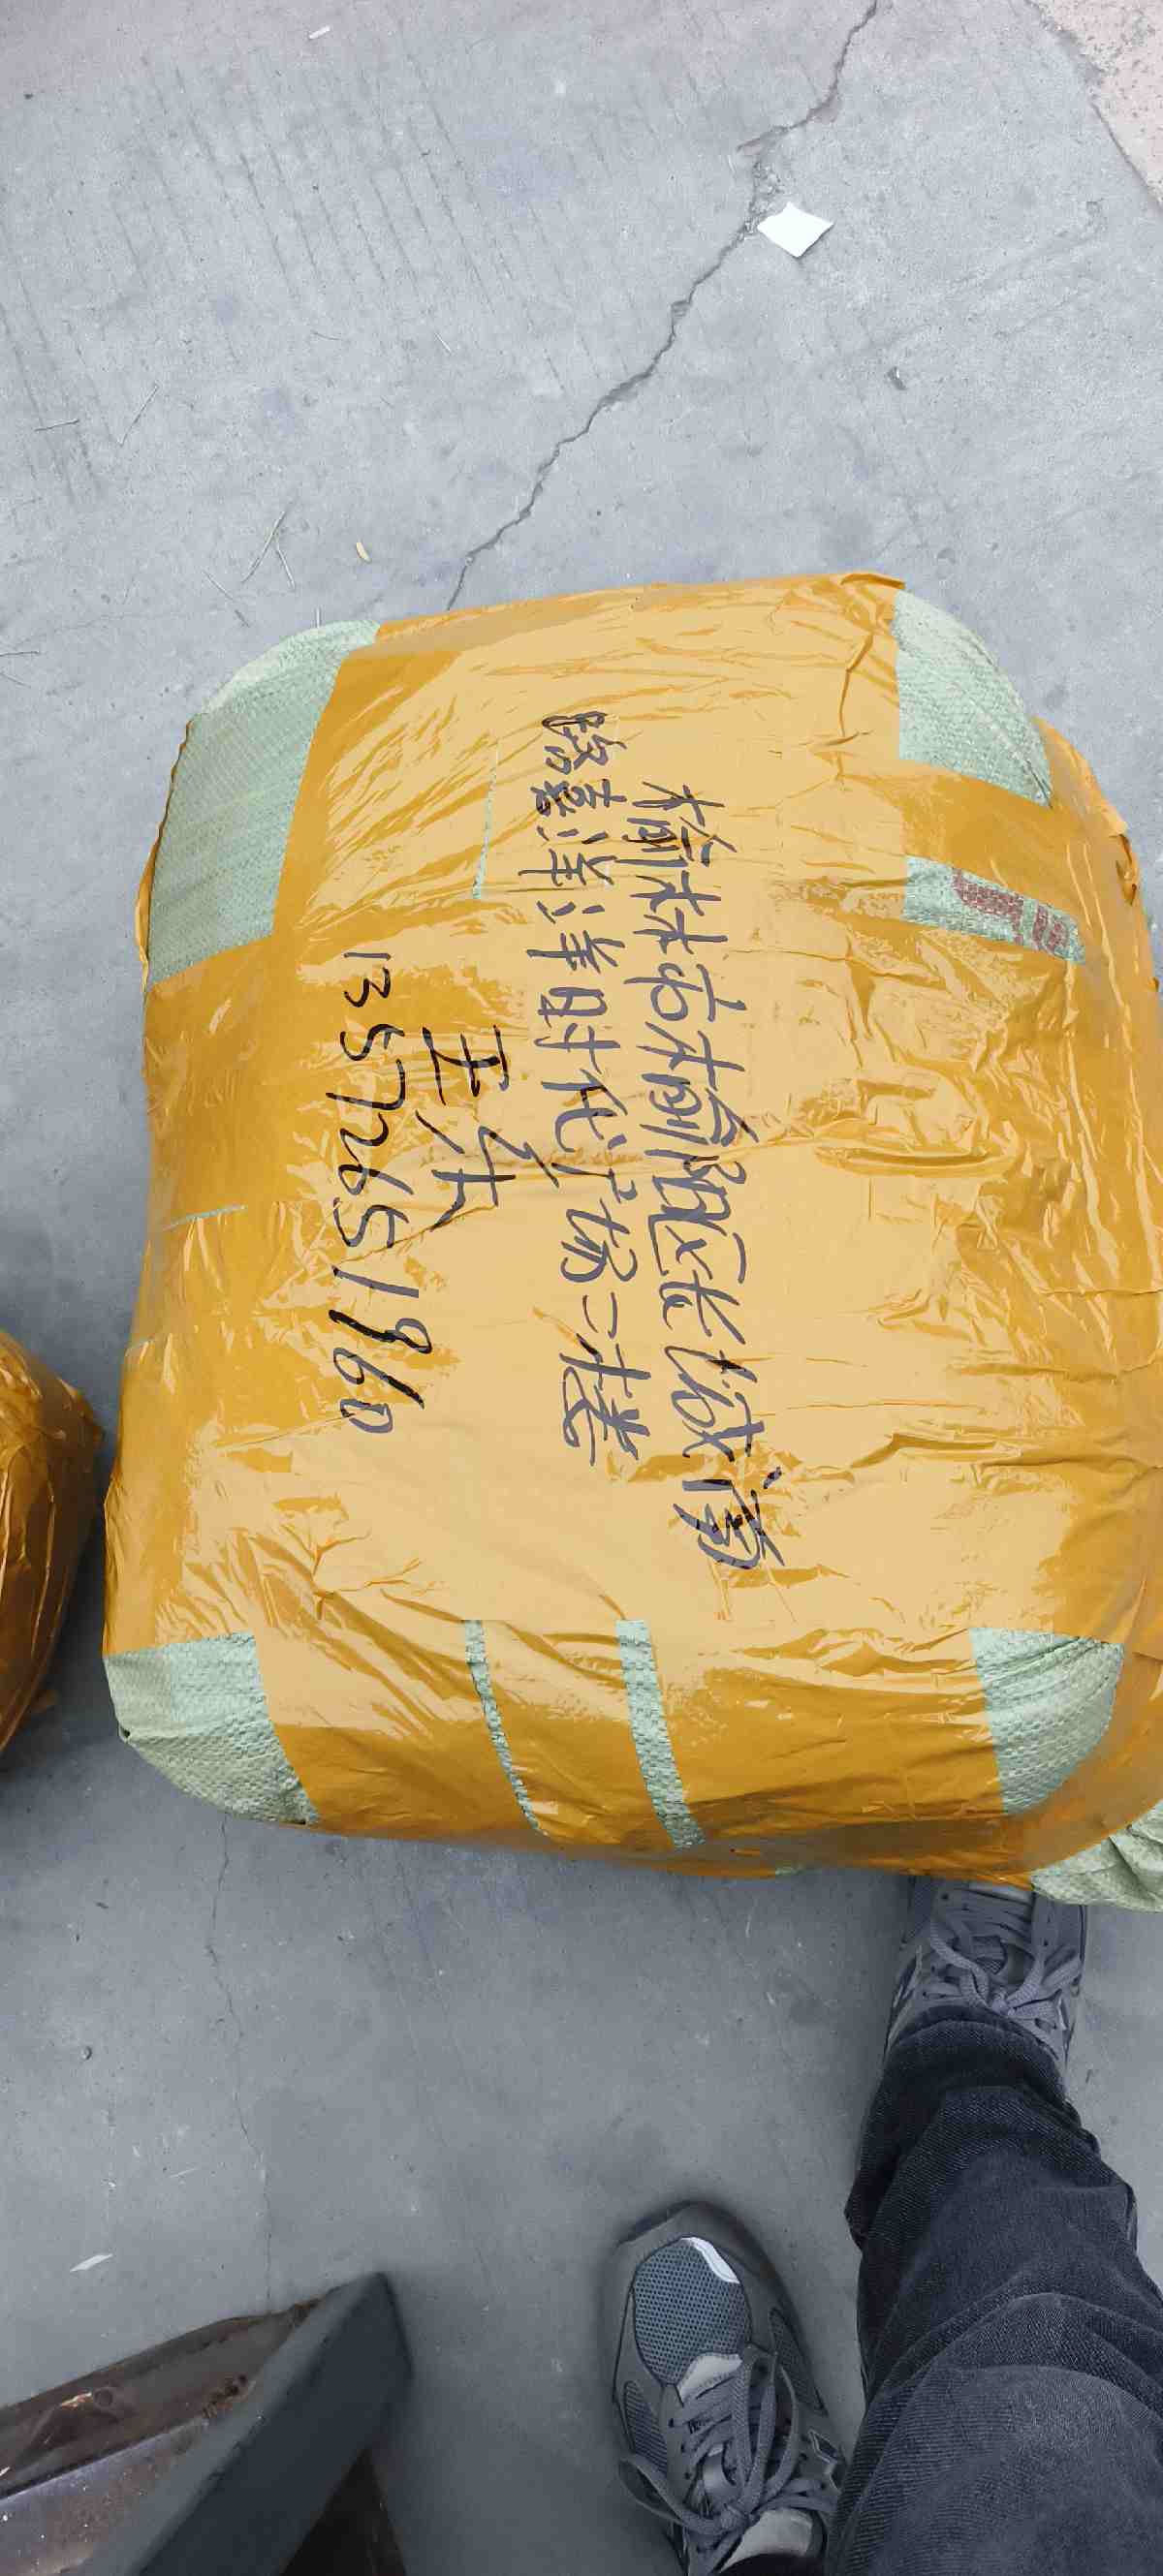 榆林市榆阳区长城南
路喜洋洋时代广场二楼
王红
13572651960